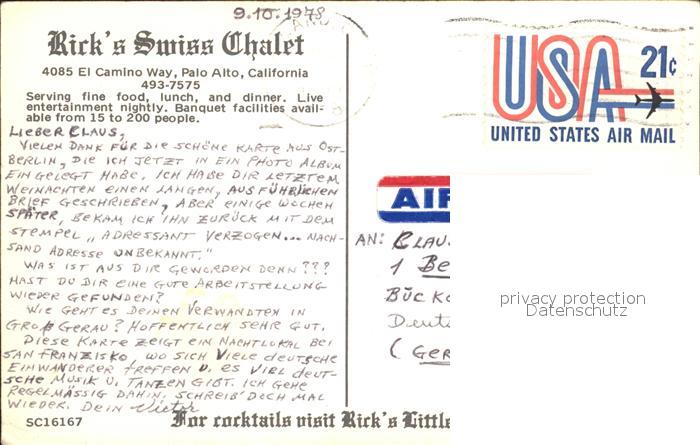 9.10.1978
Rick's Swiss Chalet
4085 El Camino Way, Palo Alto, California
493-7575
Serving fine food, lunch, and dinner. Live
entertainment nightly. Banquet facilities avail-
able from 15 to 200 people.
LIEBER CLAUS,
VIELEN DANK FÜR DIE SCHÖNE KARTE AUS OST-
BERLIN, DIE ICH JETZT IN EIN PHOTO ALBUM
EINGELEGT HABE. ICH HABE DIR LETZTEM
WEINACHTEN EINEN LANGEN, AUSFÜHRLICHEN
BRIEF GESCHRIEBEN, ABER EINIGE WOCHEN
SPÄTER, BEKAM ICH IHN ZURÜCK MIT DEM
STEMPEL „ADRESSANT VERZOGEN... NACH-
SAND ADRESSE UNBEKANNT."
WAS IST AUS DIR GEWORDEN DENN???
HAST DU DIR EINE GUTE ARBEITSTELLUNG
WIEDER GEFUNDEN?
WIE GEHT ES DEINEN VERWANDTEN IN
GROß GERAU? HOFFENTLICH SEHR GUT.
DIESE KARTE ZEIGT EIN NACHTLOKAL BEI
SAN FRANZISKO, WO SICH VIELE DEUTSCHE
EINWANDERER TREFFEN U. ES VIEL DEUT-
SCHE MUSIK U. TANZEN GIBT. ICH GEHE
REGELMÄSSIG DAHIN. SCHREIB' DOCH MAL
WIEDER. DEIN Victor
SC16167
For cocktails visit Rick's Littl
USA 21¢
UNITED STATES AIR MAIL
AIR
AN: CLAU
1 BE
BÜCK
Deut
(GER
privacy protection
Datenschutz